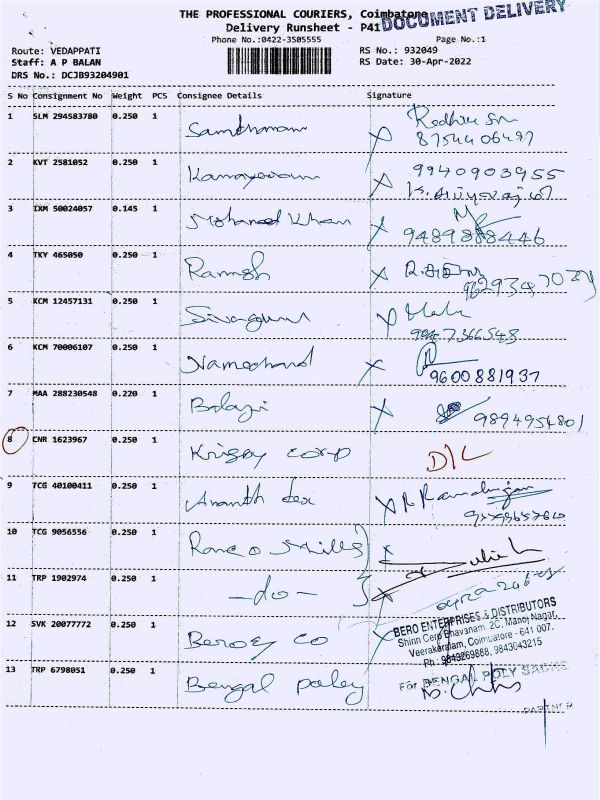 THE PROFESSIONAL COURIERS, Coimbatore
DOCUMENT DELIVERY
Delivery Runsheet - P41
Phone No.:0422-3505555
Page No.:1
Route: VEDAPPATI
RS No.: 932049
Staff: A P BALAN
RS Date: 30-Apr-2022
DRS No.: DCJB93204901
S No Consignment No Weight PCS Consignee Details Signature
1 SLM 294583780 0.250 1
2 KVT 2581052 0.250 1 9940903955
3 IXM 50024057 0.145 1 Mohamed Khan
9489888446
4 TKY 465050 0.250 1 Ramesh
5 KCM 12457131 0.250 1
6 KCM 70006107 0.250 1 Namechand
9600881937
7 MAA 288230548 0.220 1 Balaji 9894954801
8 CNR 1623967 0.250 1 Krispy corp D/L
9 TCG 40100411 0.250 1 Ananth tex
10 TCG 9056556 0.250 1 Mills
11 TRP 1902974 0.250 1 -do-
12 SVK 20077772 0.250 1 Co
BERO ENTERPRISES & DISTRIBUTORS
Bhavanam, 2C, Manoj Nagar,
Veerakeralam, Coimbatore - 641 007.
Ph : 9843269888, 9843043215
13 TRP 6798051 0.250 1 Bengal poley
For BENGAL POLY SACKS
PARTNER